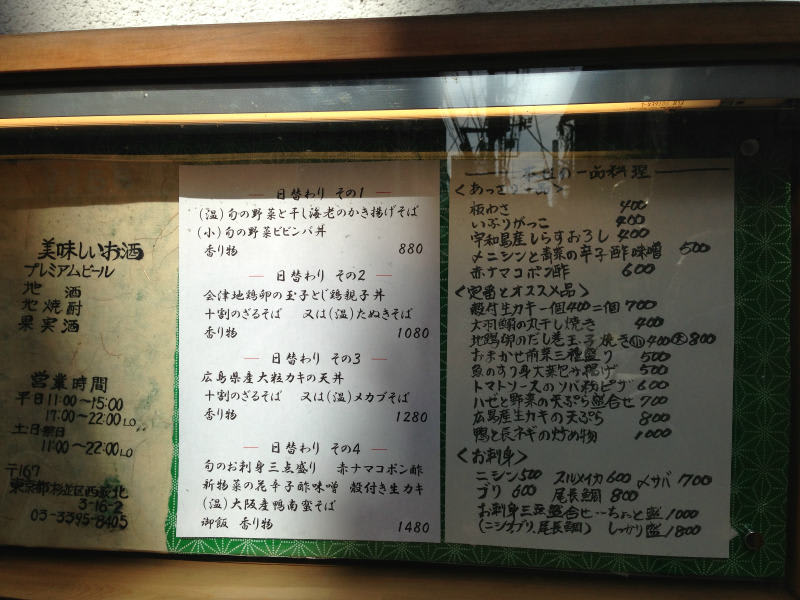 美味しいお酒
プレミアムビール
地 酒
地焼酎
果実酒
営業時間
平日11:00〜15:00
17:00〜22:00LO
土日祭日
11:00〜22:00LO
〒167
東京都杉並区西荻北
3-16-2
03-3395-8405
日替わり その1
(温)旬の野菜と干し海老のかき揚げそば
(小)旬の野菜ビビンバ丼
香り物 880
日替わり その2
会津地鶏卵の玉子とじ鶏親子丼
十割のざるそば 又は(温)たぬきそば
香り物 1080
日替わり その3
広島県産大粒カキの天丼
十割のざるそば 又は(温)メカブそば
香り物 1280
日替わり その4
旬のお刺身三点盛り 赤ナマコポン酢
新物菜の花辛子酢味噌 殻付き生カキ
(温)大阪産鴨南蛮そば
御飯 香り物 1480
一品料理
<あっさり一品>
板わさ 400
いぶりがっこ 400
宇和島産しらすおろし 400
メニシンと青菜の辛子酢味噌 500
赤ナマコポン酢 600
<定番とオススメ品>
殻付生カキ一個400 二個700
大羽鰯の丸干し焼き 400
地鶏卵のだし巻玉子焼き(小)400(大)800
おまかせ前菜三種盛り 500
魚のすり身大葉包み揚げ 500
トマトソースのソバ粉ピザ 600
ハゼと野菜の天ぷら盛合せ 700
広島産生カキの天ぷら 800
鴨と長ネギの炒め物 1000
<お刺身>
ニシン500 スルメイカ600 〆サバ700
ブリ 600 尾長鯛 800
お刺身三点盛合せ…ちょっと盛 1000
(ニシン、ブリ、尾長鯛) しっかり盛 1800